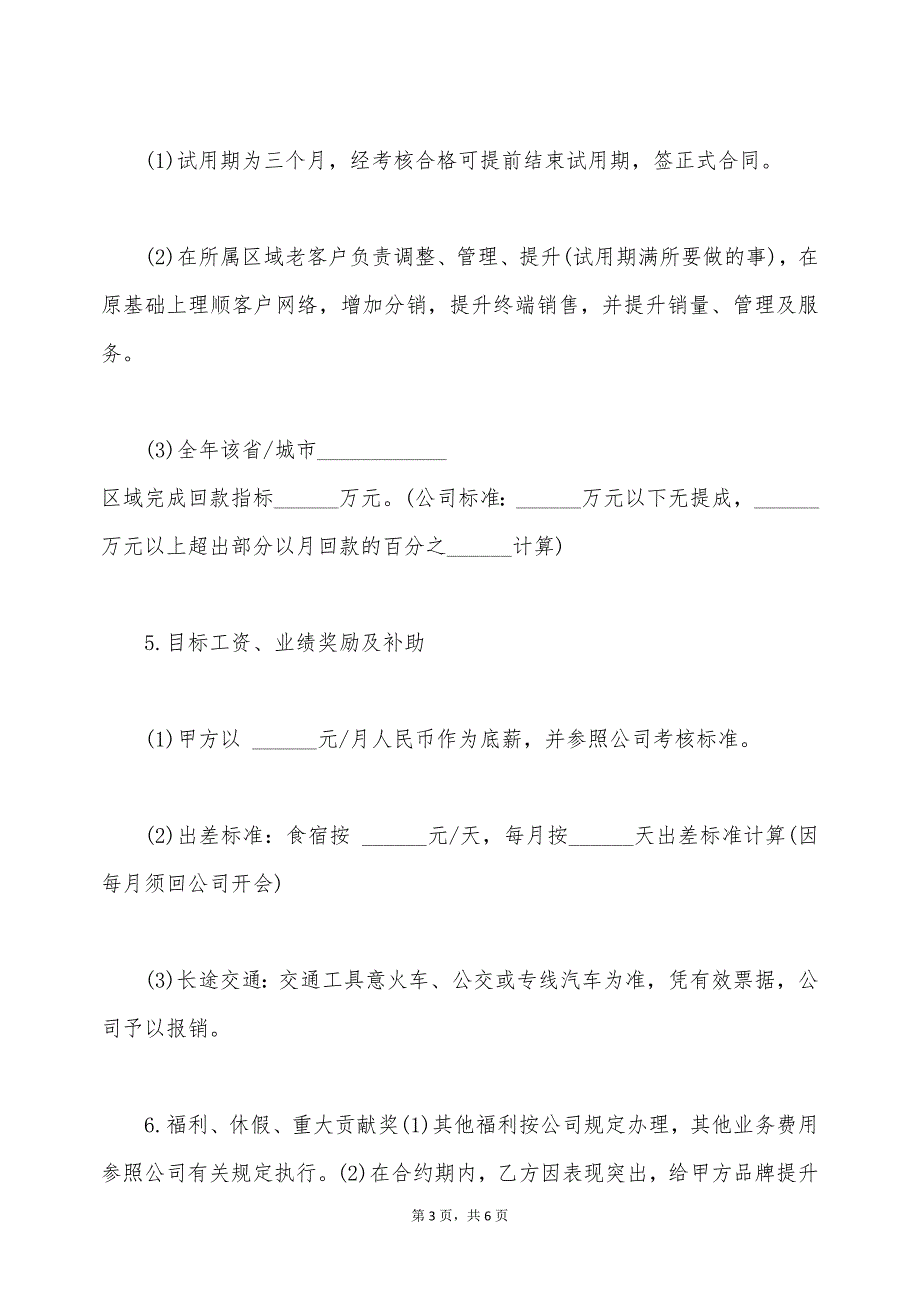 (1)试用期为三个月，经考核合格可提前结束试用期，签正式合同。
(2)在所属区域老客户负责调整、管理、提升(试用期满所要做的事)，在
原基础上理顺客户网络，增加分销，提升终端销售，并提升销量、管理及服
务。
(3)全年该省/城市____________
区域完成回款指标______万元。(公司标准：______万元以下无提成，______
万元以上超出部分以月回款的百分之______计算)
5.目标工资、业绩奖励及补助
(1)甲方以 ______元/月人民币作为底薪，并参照公司考核标准。
(2)出差标准：食宿按 ______元/天，每月按______天出差标准计算(因
每月须回公司开会)
(3)长途交通：交通工具意火车、公交或专线汽车为准，凭有效票据，公
司予以报销。
6.福利、休假、重大贡献奖(1)其他福利按公司规定办理，其他业务费用
参照公司有关规定执行。(2)在合约期内，乙方因表现突出，给甲方品牌提升
第 3 页，共 6 页